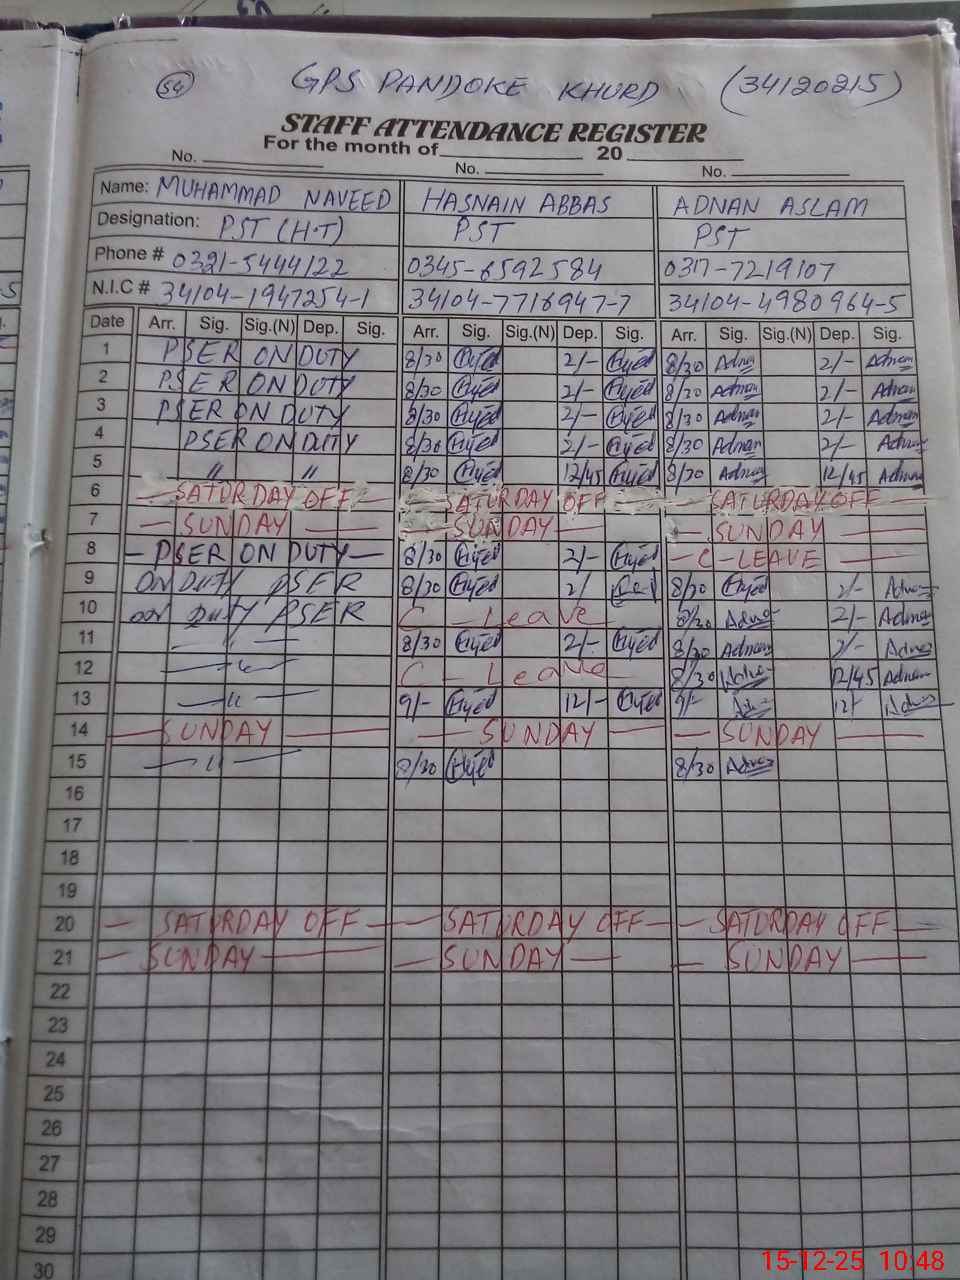 54
GPS PANDOKE KHURD (34120215)
STAFF ATTENDANCE REGISTER
For the month of 20
No. No. No.
Name: MUHAMMAD NAVEED HASNAIN ABBAS ADNAN ASLAM
Designation: PST (H.T) PST PST
Phone # 0321-5444122 0345-6592584 0317-7219107
N.I.C # 34104-1947254-1 34104-7716947-7 34104-4980964-5
Date Arr. Sig. Sig.(N) Dep. Sig. Arr. Sig. Sig.(N) Dep. Sig. Arr. Sig. Sig.(N) Dep. Sig.
1 PSER ON DUTY 8/30 2/- 8/30 Adnan 2/- Adnan
2 PSER ON DUTY 8/30 2/- 8/30 Adnan 2/- Adnan
3 PSER ON DUTY 8/30 2/- 8/30 Adnan 2/- Adnan
4 PSER ON DUTY 8/30 2/- 8/30 Adnan 2/- Adnan
5 " " 8/30 12/45 8/30 Adnan 12/45 Adnan
6 — SATURDAY OFF — — SATURDAY OFF — — SATURDAY OFF —
7 — SUNDAY — — SUNDAY — — SUNDAY —
8 — PSER ON DUTY — 8/30 2/- — C - LEAVE —
9 ON DUTY PSER 8/30 2/ 8/30 2/- Adnan
10 on Duty PSER C - Leave 8/30 Adnan 2/- Adnan
11 — " — 8/30 2/- 8/30 Adnan 2/- Adnan
12 — " — C - Leave 8/30 Adnan 12/45 Adnan
13 — " — 9/- 12/- 9/- Adnan 12/- Adnan
14 — SUNDAY — — SUNDAY — — SUNDAY —
15 — " — 8/30 8/30 Adnan
16
17
18
19
20 — SATURDAY OFF — — SATURDAY OFF — — SATURDAY OFF —
21 — SUNDAY — — SUNDAY — — SUNDAY —
22
23
24
25
26
27
28
29
30
15-12-25 10:48